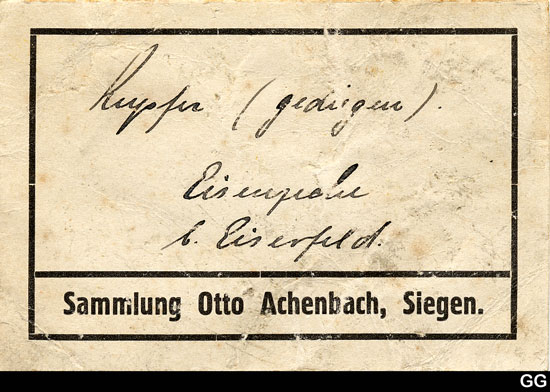 Kupfer (gediegen).
Eisenzeche
b. Eiserfeld.
Sammlung Otto Achenbach, Siegen.
GG